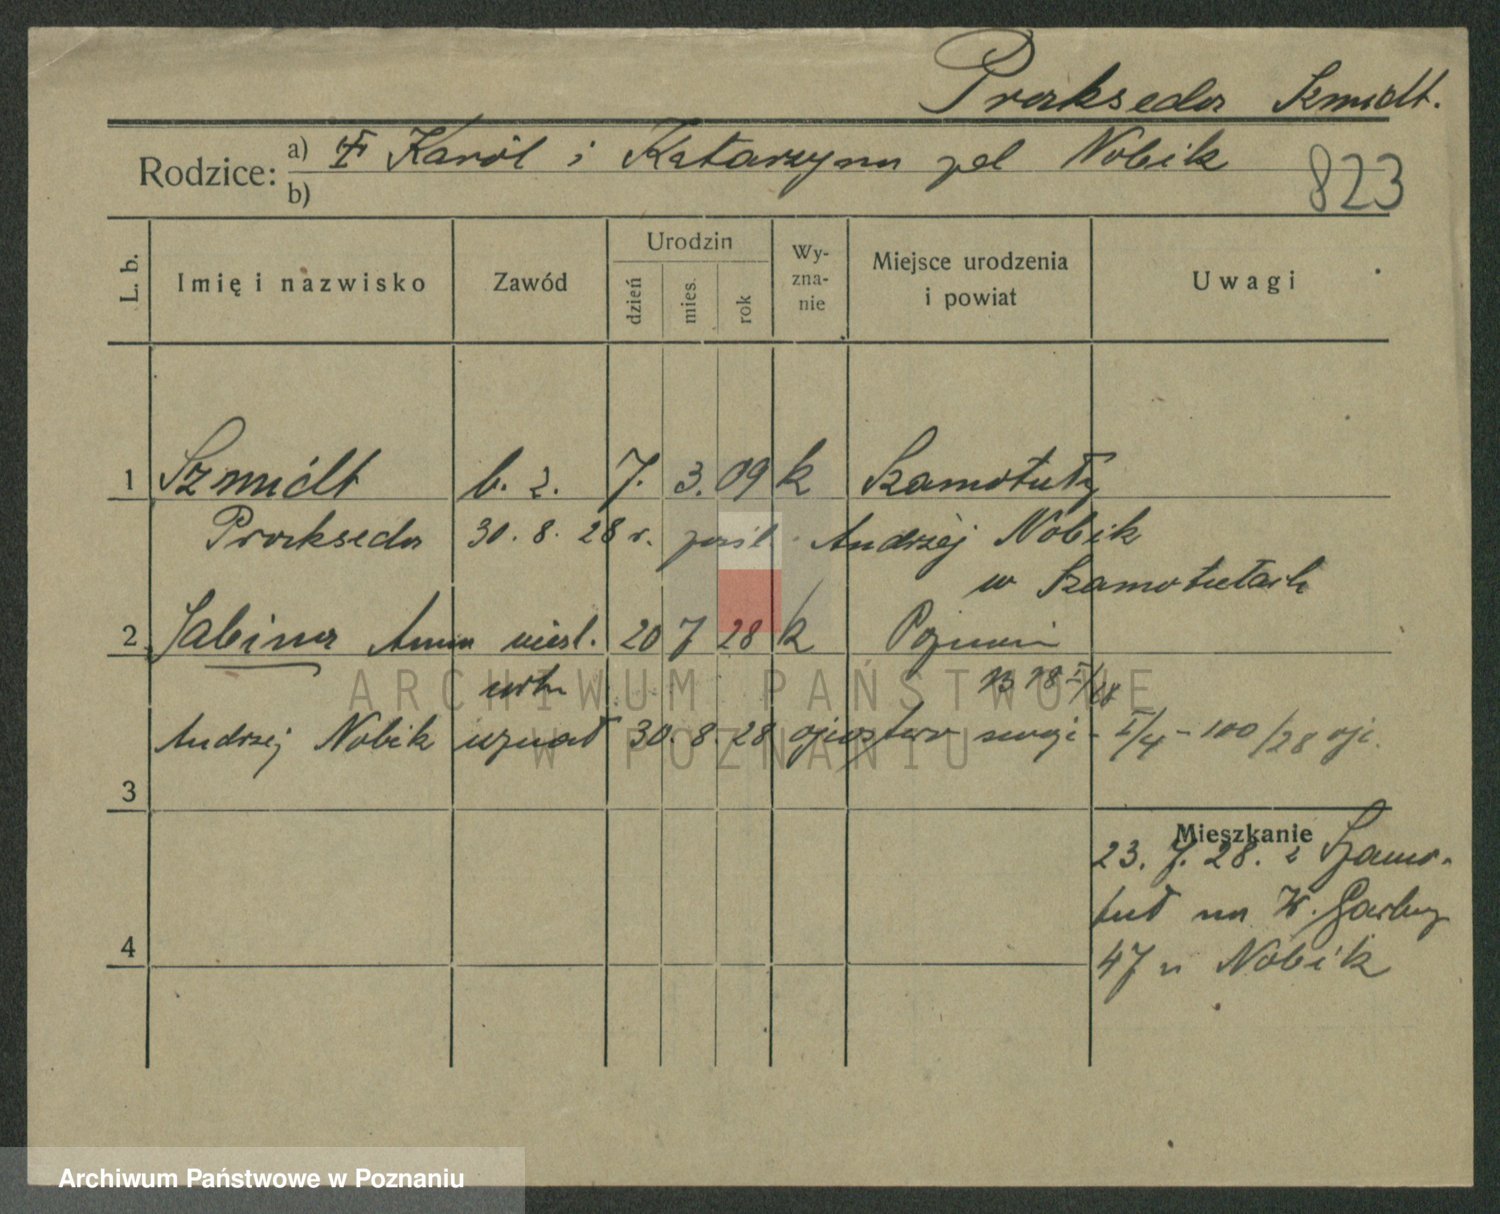 Prakseda Szmidt.
Rodzice: a) Karól i Katarzyna Nobik
b)
823
L. b.
Imię i nazwisko
Zawód
Urodzin
dzień
mies.
rok
Wy-
zna-
nie
Miejsce urodzenia
i powiat
Uwagi
1 Szmidt b. z. 7. 3. 09 k Szamotuły
Prakseda 30. 8. 28 r. pośl. Andrzej Nobik
w Szamotułach
2 Sabina Anna nieśl. 20 7 28 k Poznań
ARCHIWUM PAŃSTWOWE
W POZNANIU
Andrzej Nobik uznał 30. 8. 28 ojcostwo - I/4 - 100/28
3
Mieszkanie
23. 7. 28. z Szamo-
tuł na W. Garbary
47 u Nobik
4
Archiwum Państwowe w Poznaniu